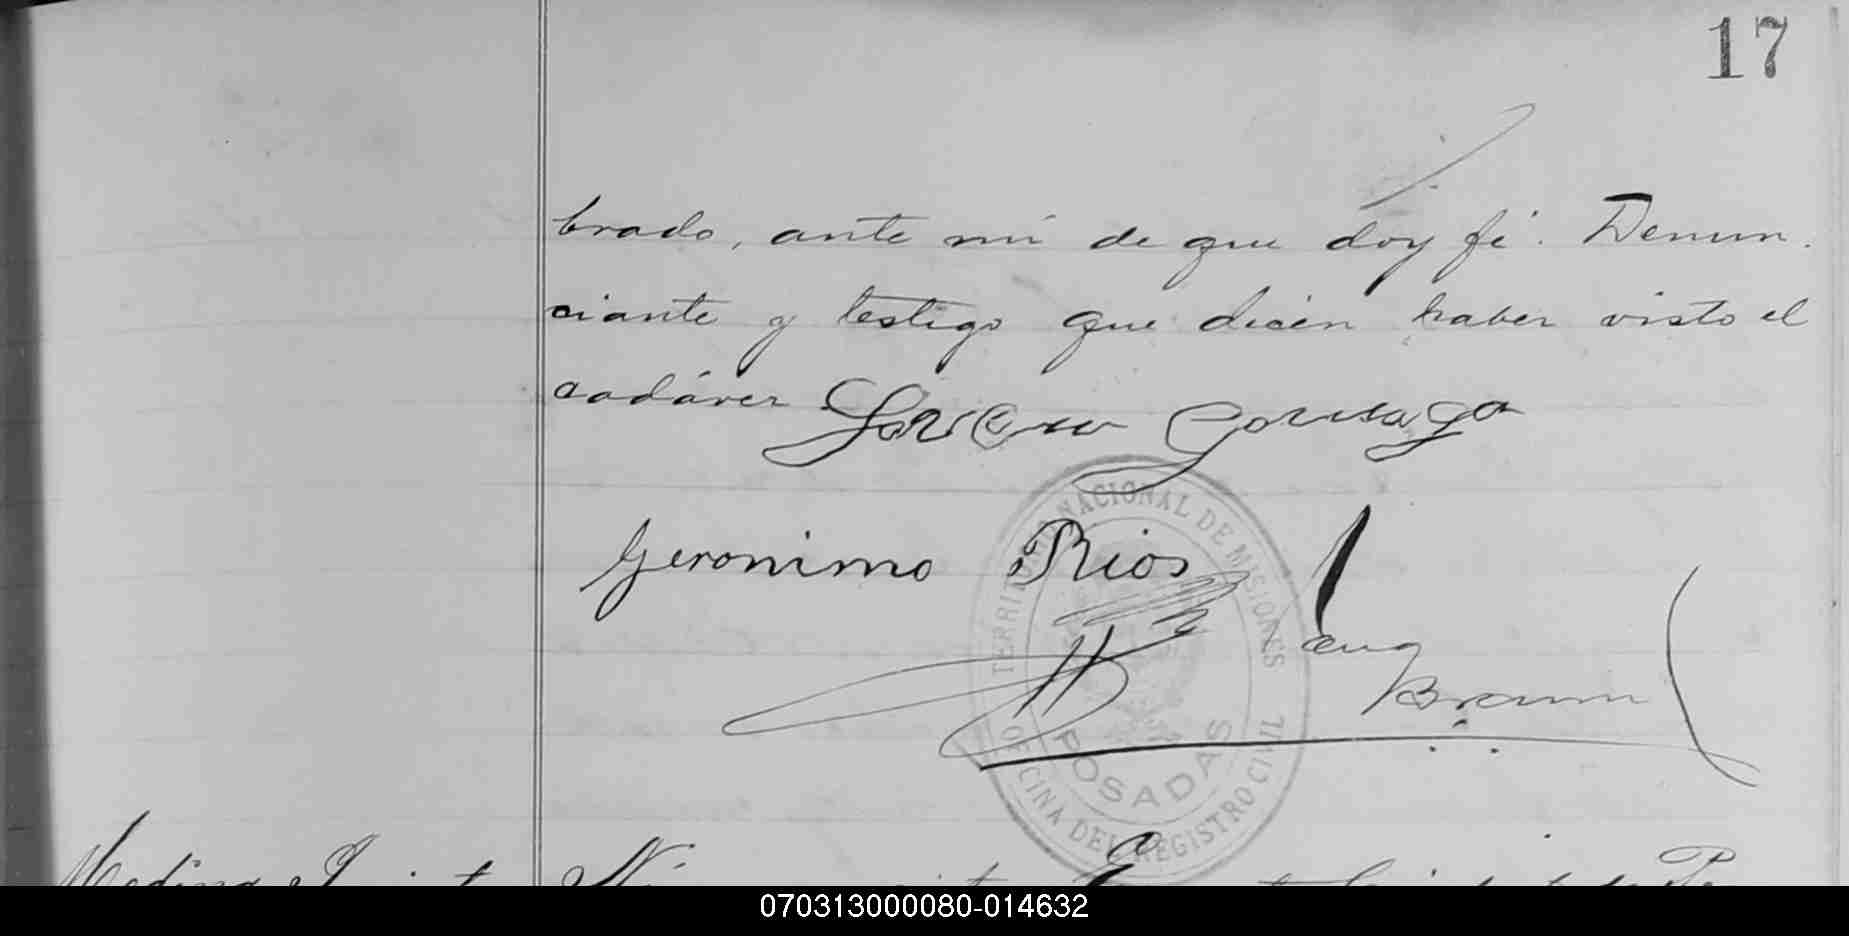 17
brado, ante mi de que doy fé. Denun.
ciante y testigo que dicen haber visto el
cadáver
Gonsaga
Geronimo Rios
TERRITORIO NACIONAL DE MISIONES
Aug
Braun
POSADAS
OFICINA DEL REGISTRO CIVIL
Medina
070313000080-014632